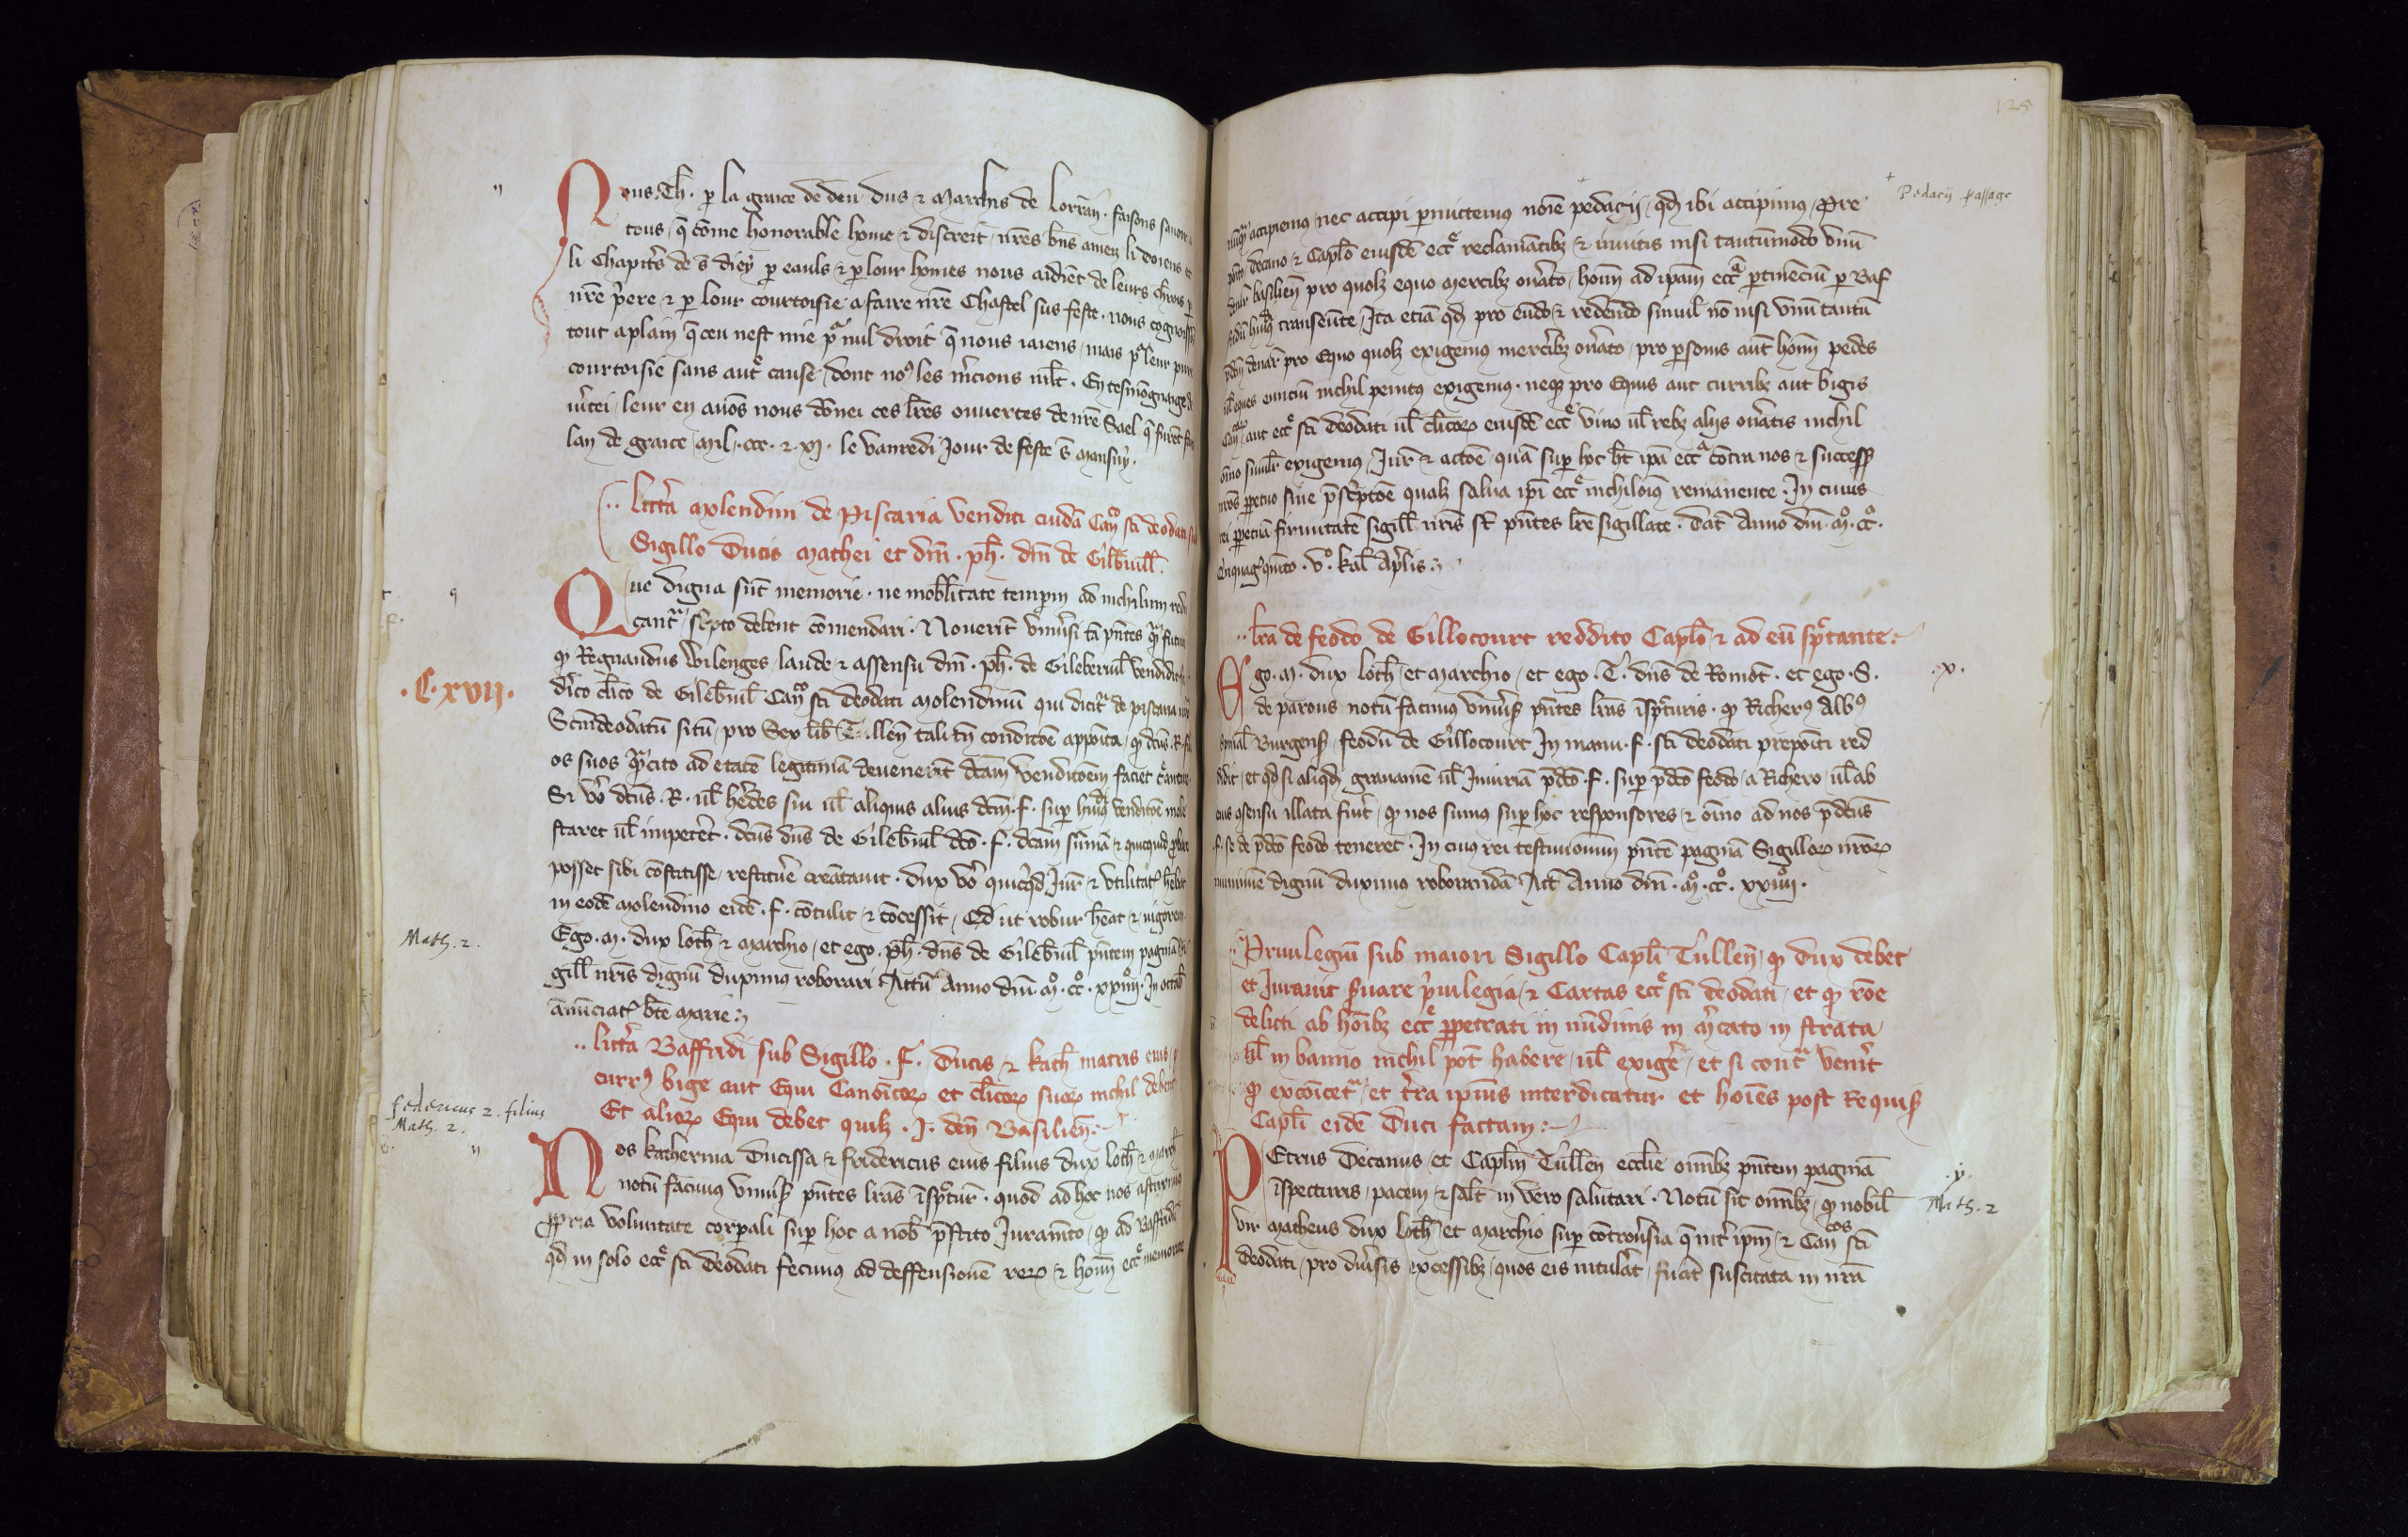 Nous Th. p la graice de deu dus ⁊ marchis de Lorrañ. faisons savoir
tous q̄ cōme honorable hōme ⁊ discreit nr̄es bn̄s amez li doiens et
li chapitr̄s de s̄ diey p eauls ⁊ p lour hōmes nous aidiēt de leurs
nr̄e p̄ere ⁊ p lour courtoisie a faire nr̄e Chastel sus feste. nous
tout a plain q̄ ceu nest mie pͣ nul droit q̄ nous iaiens, mais pͣ leur pure
courtoisie sans aut͛ cause, dont noꝰ les m̄cions ml̄t. En tesmōgnaige de
v̄itei, leur en auōs nous dōnei ces lr̄es ouuertes de nr̄e Sael q̄ furēt
lan de graice mil. ccc. ⁊ xj. le vanredi jour de feste s̄ mansuy.
..litt̄a molendini de Piscaria venditi cuidā Cañ sc̄i deodati
Sigillo Ducis mathei et dn̄i. ph̄. dn̄i de Gilb̄uill̄.
Que digna sūt memorie. ne mobl̄itate temporum ad nichilum redu
cantᷣ, sc̄pto debent cōmendari. Nouerīt vniūsi tā pn̄tes qͣ futuri
ꝙ Regnaudus Wilenges, laude ⁊ assensu dn̄i. ph̄. de Gileberuil̄ vendidit
cl̄ico de Gileb̄uil̄ Cañ sc̄i deodati molendinū qui dicitᷣ de piscaria
Scm̄deodatū sitū, pro Sex lib̄ Tullen̄ tali tn̄ conditōe appoīta, ꝙ dc̄us. R. fili
os suos qͣcito ad etatē legitimā deuenerīt dc̄am venditōem faciet
Si v̄o dc̄us. R. ul̄ h̄edes sui ul̄ aliquis alius dc̄m. f. sup huiꝰ venditōe mole
staret ul̄ impeteret. dc̄us dn̄s de Gileb̄uil̄ dc̄o. f. dc̄am sūmā ⁊ quicquid
posset sibi cōstitisse, restitu̅e creātauit. dux v̄o quicqͥd Jur̄ ⁊ vtilitatꝭ
in eodē molendino eidē. f. cōtulit ⁊ cōcessit, Qd̄ ut robur h̄eat ⁊ uigorem
Ego. m. dux loth̄ ⁊ marchio, et ego. ph̄. dn̄s de Gileb̄uil̄ pn̄tem paginā Si
gill̄ nr̄is dignū duximꝰ roborari. Actū Anno dn̄i. mͦ. ccͦ. xxiiijͦ. In octab̄
ānūciatꝭ bt̄e marie:
..litt̄a Baffridi sub Sigillo. f. Ducis ⁊ kath̄ matris eius,
currꝰ bige aut Equi Canōicoꝝ et cl̄icoꝝ suoꝝ nichil debent
Et alioꝝ Equi debet quilꝫ. I. den̄ Basilien̄:
Nos katherina Ducissa ⁊ fridericus eius filius dux loth̄ ⁊ march̄
notū facimꝰ vniūs̄ pn̄tes lr̄as īspc̄tur̄. quod ad hoc nos
ꝓpria voluntate corpali sup hoc a nob̄ p̄stito Juramēto, ꝙ ad Baffridū
qd̄ in solo ecc̄e sc̄i deodati fecimꝰ ad deffensionē reꝝ ⁊ hoīm ecc̄e
.C.xvij.
Math. 2.
federicus 2. filius
Math. 2.
125
Pedacij passage
accipiemus, nec accipi permittemus noīe pedagij, qd̄ ibi accipimꝰ, Pre
decano ⁊ Caplo eiusdē ecc̄e reclamātibꝫ ⁊ inuitis nisi tantūmodo vnū
basilien̄ pro quolꝫ equo mercibꝫ on̄ato, hoīm ad ipam ecc̄am ptinēciū p Baf
transeunte, Ita etiā qd̄ pro eundo ⁊ redeūdo simul nō nisi vnū tantū
denar̄ pro Equo quolꝫ exigemꝰ mercibꝫ on̄ato, pro psonis aūt hoīm pedes
eques euntiū nichil penitꝰ exigemus. neqꝫ pro Equis aut curribꝫ aut bigis
Cañ, aut ecc̄e sc̄i deodati ul̄ cl̄icoꝝ eiusdē ecc̄e vino ul̄ rebꝫ alijs on̄atis nichil
oīno simil̄r exigemus, Jur̄ ⁊ actōe, quā sup hoc h̄t ipā ecc̄a cōtra nos ⁊ success̄
nr̄os ppetuo siue p̄sc̄ptōe qualꝫ salua ipi ecc̄e nichiloīꝰ remanente. In cuius
rei ppetuā firmitatē sigill̄ nr̄is st̄ pn̄tes lr̄e sigillate. Dat̄ Anno dn̄i. mͦ. ccͦ.
quinto. vͦ. kal̄ Ap̄lis:
..lr̄a de feodo de Gillocourt reddito Caplo ⁊ ad eū sp̄ctante:
Ego. m. dux loth̄ et marchio, et ego. T. dn̄s de Romōt. et ego. S.
de parous notū facimꝰ vniūs̄ pn̄tes lr̄as īspc̄turis. ꝙ Richerꝰ Albꝰ
Burgens̄, feodū de Gillocourt In manu. f. sc̄i deodati prepoīti red
didit, et qd̄ si aliqd̄ grauamē ul̄ Iniuriā p̄dc̄o. f. sup p̄dc̄o feodo, a Richero, ul̄ ab
eius ɔsensu illata fūit, ꝙ nos sumus sup hoc responsores, ⁊ oīno ad nos p̄dc̄us
.f. se de p̄dc̄o feodo teneret. In cuiꝰ rei testimoniū pn̄tē paginā Sigilloꝝ nr̄oꝝ
munimīe dignū duximꝰ roborandā Act̄ Anno dn̄i. mͦ. ccͦ. xxiiijͦ.
.x.
Priuilegiū sub maiori Sigillo Capli Tullen̄, ꝙ dux debet
et Jurauit s̄uare p̄uilegia, ⁊ Cartas ecc̄e sc̄i deodati, et ꝙ rōe
delicti ab hoībꝫ ecc̄e ppetrati in nūdinis in m̄cato in strata
ul̄ in banno nichil pōt habere, ul̄ exiḡe, et si contͣ uen̄it
ꝙ excōicetᷣ, et t̄ra ipiꝰ interdicatur et hoīes post Requis̄
Capli eidē Duci factam:
PEtrus Decanus, et Caplm̄ Tullen̄ ecclīe oīmbꝫ pn̄tem paginā
īspecturis, pacem, ⁊ salt̄ in vero salutari. Notū sit oīmbꝫ, ꝙ nobil̄
vir matheus dux loth̄ et marchio sup cōtrou̅sia q̄ int̄ ipm̄ ⁊ Cañcos sc̄i
deodati, pro diūsis excessibꝫ, quos eis intulāt, fūat suscitata in nr̄a
.y.
Math. 2